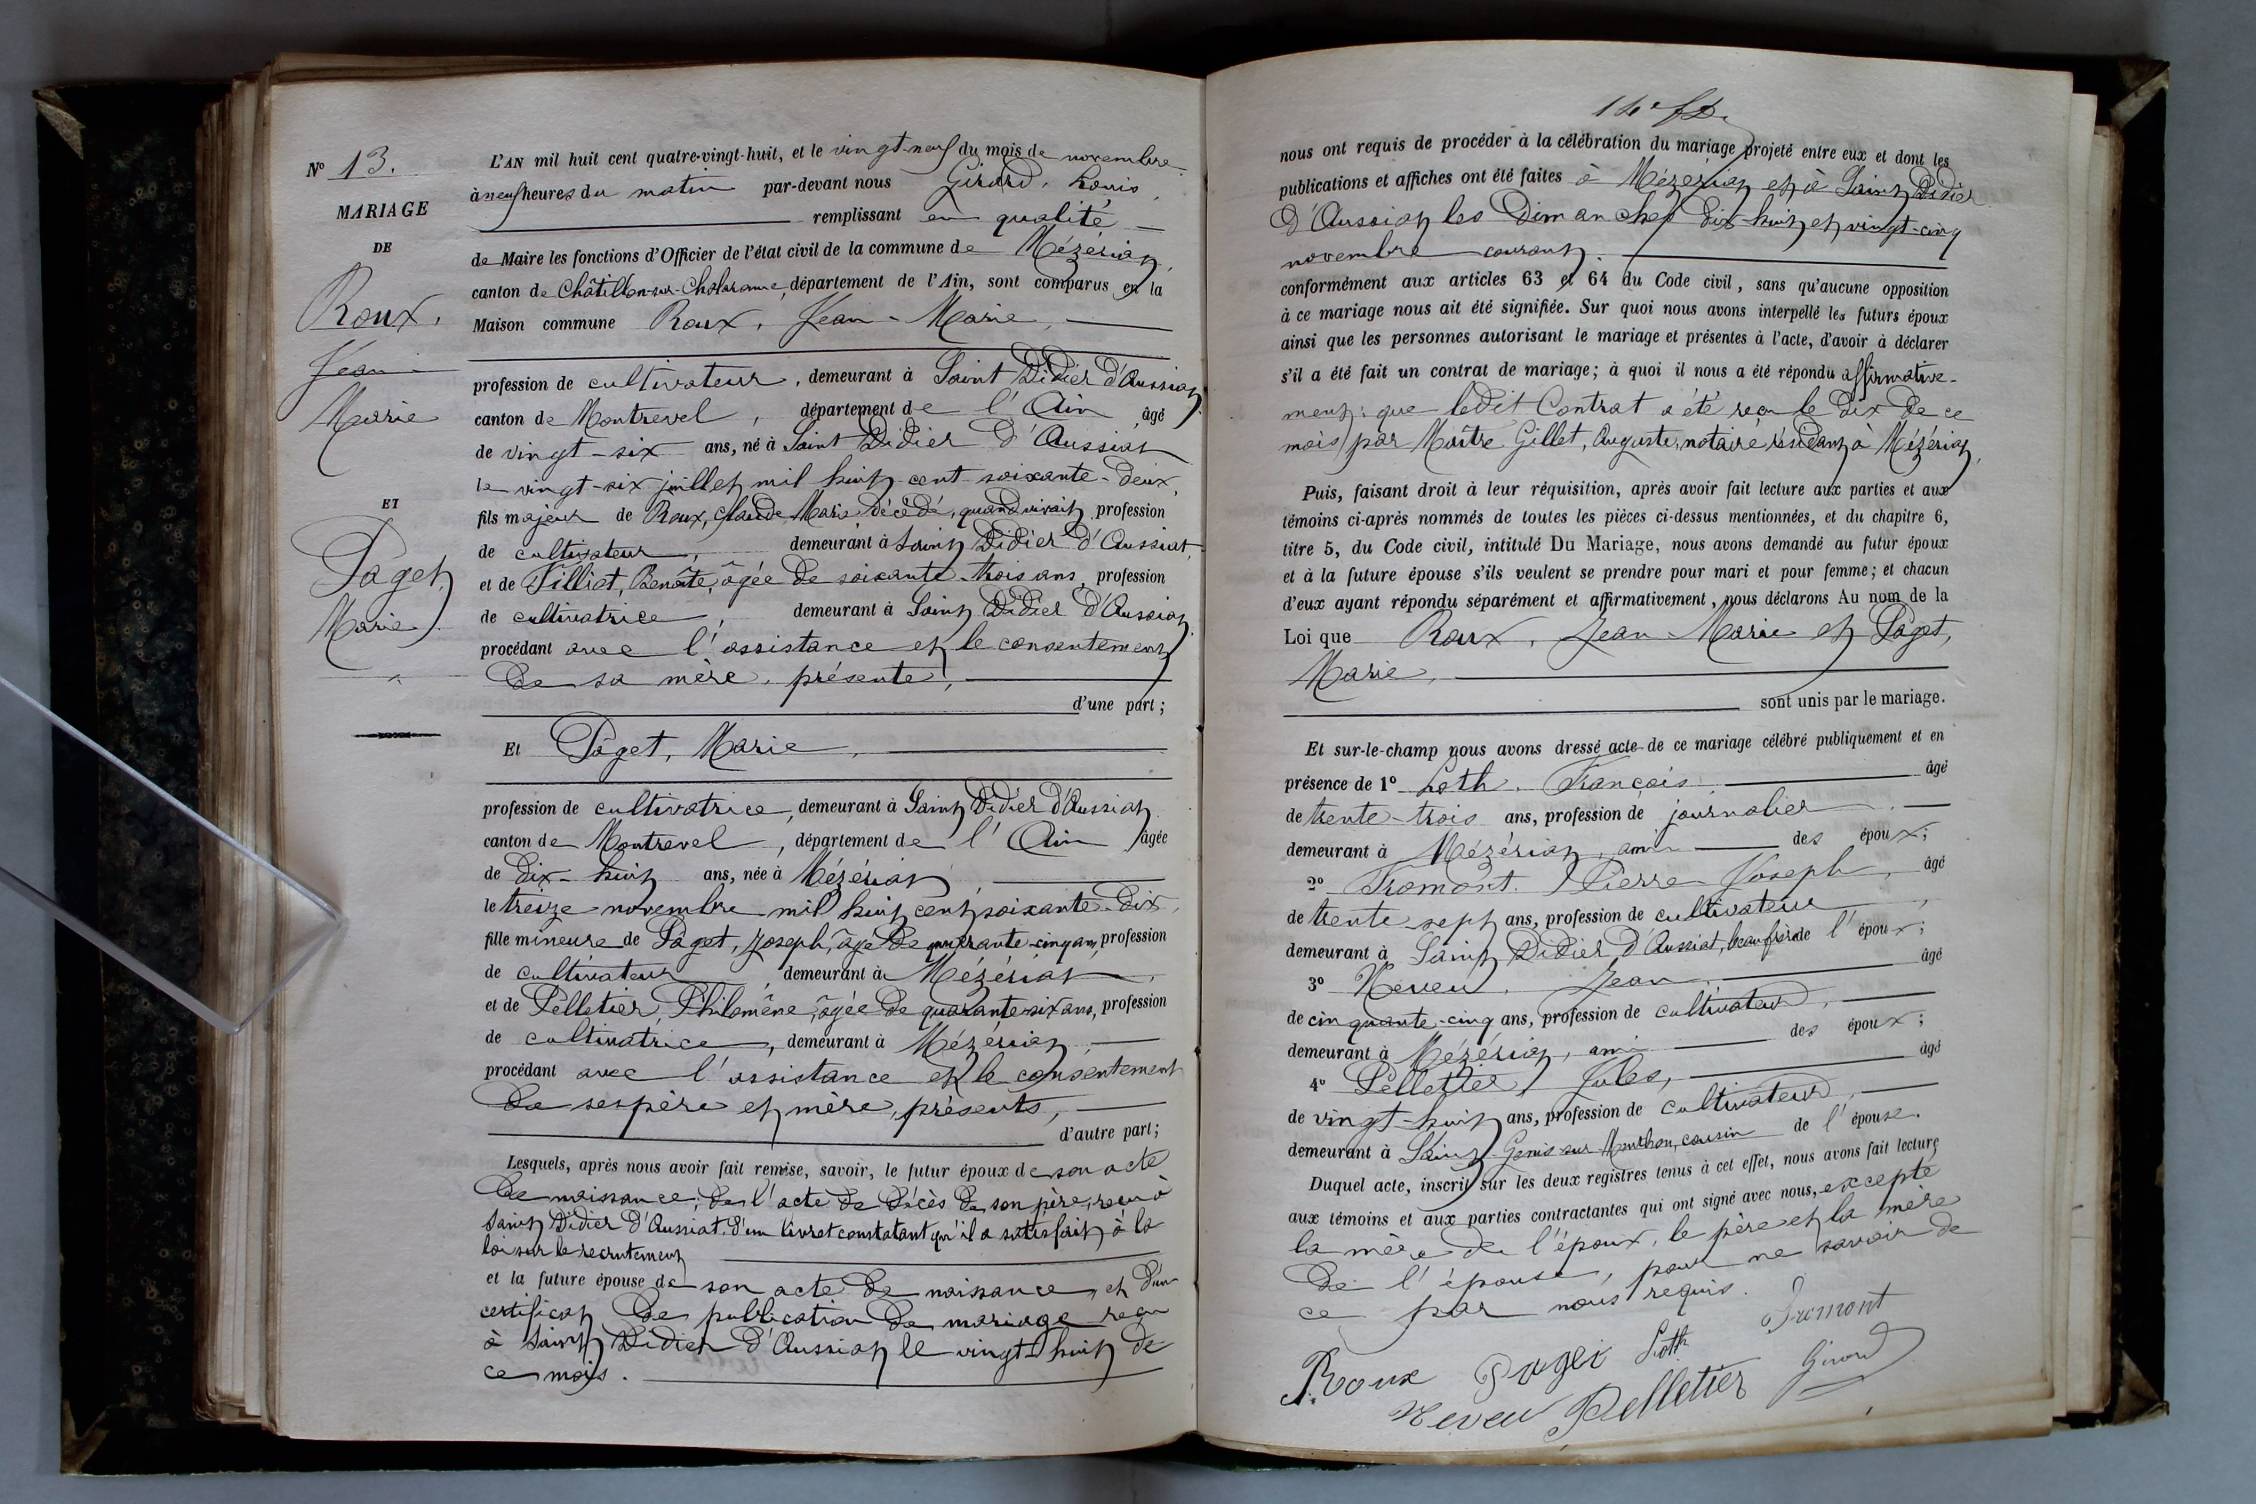 N° 13.
MARIAGE
DE
Roux,
Jean-
Marie
ET
Paget,
Marie.
L'AN mil huit cent quatre-vingt-huit, et le vingt-neuf du mois de novembre
à neuf heures du matin par-devant nous Girard, Louis,
remplissant en qualité
de Maire les fonctions d'Officier de l'état civil de la commune de Mézériat,
canton de Châtillon-sur-Chalaronne, département de l'Ain, sont comparus en la
Maison commune Roux, Jean-Marie,
profession de cultivateur, demeurant à Saint Didier d'Aussiat
canton de Montrevel, département de l'Ain âgé
de vingt-six ans, né à Saint Didier d'Aussiat
le vingt-six juillet mil huit cent soixante-deux,
fils majeur de Roux, Claude Marie décédé, quand vivait profession
de cultivateur, demeurant à Saint Didier d'Aussiat,
et de Tilliet, Benoîte, âgée de soixante-trois ans, profession
de cultivatrice, demeurant à Saint Didier d'Aussiat,
procédant avec l'assistance et le consentement
de sa mère, présente,
d'une part;
Et Pâget, Marie,
profession de cultivatrice, demeurant à Saint Didier d'Aussiat
canton de Montrevel, département de l'Ain âgée
de dix-huit ans, née à Mézériat
le treize novembre mil huit cent soixante-dix,
fille mineure de Pâget, Joseph, âgé de quarante-cinq ans, profession
de cultivateur, demeurant à Mézériat,
et de Pelletier, Philomène, âgée de quarante-six ans, profession
de cultivatrice, demeurant à Mézériat,
procédant avec l'assistance et le consentement
de ses père et mère, présents,
d'autre part;
Lesquels, après nous avoir fait remise, savoir, le futur époux de son acte
de naissance; de l'acte de décès de son père, reçu à
Saint Didier d'Aussiat. d'un livret constatant qu'il a satisfait à la
loi sur le recrutement
et la future épouse de son acte de naissance, et d'un
certificat de publication de mariage reçu
à Saint Didier d'Aussiat le vingt-huit de
ce mois.
nous ont requis de procéder à la célébration du mariage projeté entre eux et dont les
publications et affiches ont été faites à Mézériat et à Saint Didier
d'Aussiat les Dimanches dix-huit et vingt-cinq
novembre courant.
conformément aux articles 63 et 64 du Code civil, sans qu'aucune opposition
à ce mariage nous ait été signifiée. Sur quoi nous avons interpellé les futurs époux
ainsi que les personnes autorisant le mariage et présentes à l'acte, d'avoir à déclarer
s'il a été fait un contrat de mariage; à quoi il nous a été répondu affirmative-
ment: que ledit Contrat a été reçu le dix de ce
mois par Maître Gillet, Auguste, notaire résidant à Mézériat,
Puis, faisant droit à leur réquisition, après avoir fait lecture aux parties et aux
témoins ci-après nommés de toutes les pièces ci-dessus mentionnées, et du chapitre 6,
titre 5, du Code civil, intitulé Du Mariage, nous avons demandé au futur époux
et à la future épouse s'ils veulent se prendre pour mari et pour femme; et chacun
d'eux ayant répondu séparément et affirmativement, nous déclarons Au nom de la
Loi que Roux, Jean-Marie et Pâget,
Marie,
sont unis par le mariage.
Et sur-le-champ nous avons dressé acte de ce mariage célébré publiquement et en
présence de 1° Loth, François, âgé
de trente-trois ans, profession de journalier,
demeurant à Mézériat, ami des époux;
2° Fromont, Pierre Joseph, âgé
de trente sept ans, profession de cultivateur,
demeurant à Saint Didier d'Aussiat, beau-frère de l'époux;
3° Neveu, Jean, âgé
de cinquante-cinq ans, profession de cultivateur,
demeurant à Mézériat, ami des époux;
4° Pelletier, Jules, âgé
de vingt-huit ans, profession de cultivateur,
demeurant à Saint Genis sur Menthon, cousin de l'épouse.
Duquel acte, inscrit sur les deux registres tenus à cet effet, nous avons fait lecture
aux témoins et aux parties contractantes qui ont signé avec nous, excepté
la mère de l'époux, le père et la mère
de l'épouse, pour ne savoir de
ce par nous requis.
Fromont
Roux Paget Loth
Girard
Neveu Pelletier